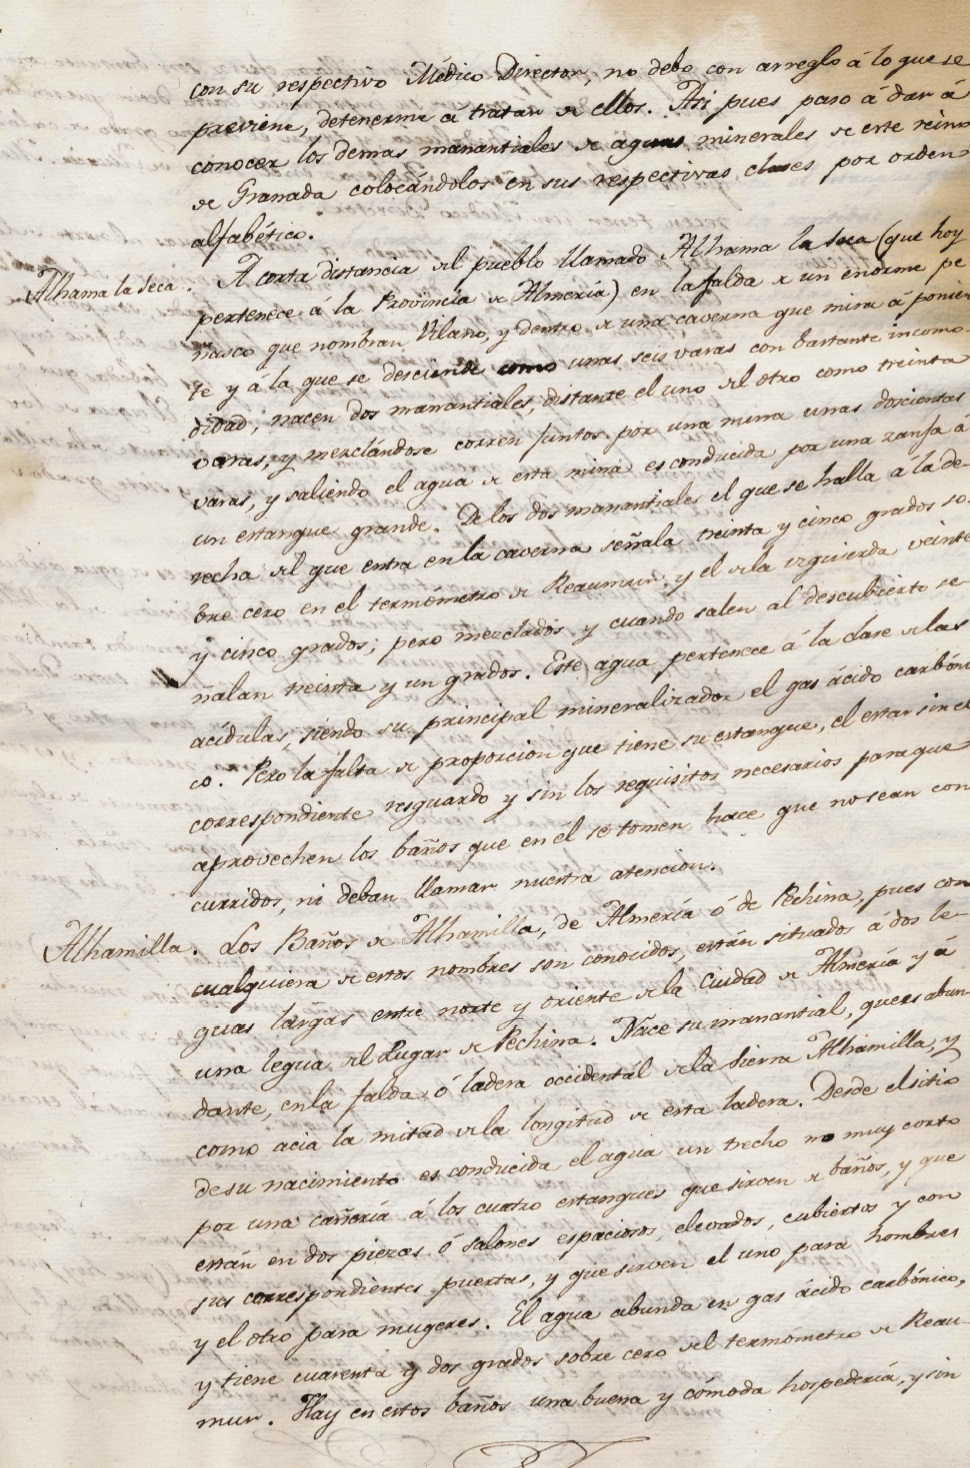 con su respectivo Médico Director, no debo con arreglo á lo que se
previene, detenerme á tratar de ellos. Asi pues paso á dar á
conocer los demas manantiales de aguas minerales de este reino
de Granada colocándolos en sus respectivas clases por orden
alfabético.
Alhama la Seca. A corta distancia del pueblo llamado Alhama la Seca (que hoy
pertenece á la Provincia de Almería) en la falda de un enorme pe
ñasco que nombran Milano, y dentro de una caverna que mira á ponien
te y á la que se desciende como unas seis varas con bastante incomo-
didad; nacen dos manantiales, distante el uno del otro como treinta
varas, y mezclándose corren juntos por una mina unas doscientas
varas, y saliendo el agua de esta mina es conducida por una zanja á
un estanque grande. De los dos manantiales el que se halla á la de-
recha del que entra en la caverna señala treinta y cinco grados so-
bre cero en el termómetro de Reaumur y el de la izquierda veinte
y cinco grados; pero mezclados y cuando salen al descubierto se-
ñalan treinta y un grados. Este agua pertenece á la clase de las
acídulas, siendo su principal mineralizador el gas ácido carbóni
co. Pero la falta de proporcion que tiene su estanque, el estar sin el
correspondiente resguardo y sin los requisitos necesarios para que
aprovechen los baños que en él se tomen hace que no sean con
curridos, ni deban llamar nuestra atencion.
Alhamilla. Los Baños de Alhamilla, de Almería ó de Pechina, pues con
cualquiera de estos nombres son conocidos, están situados á dos le-
guas largas entre norte y oriente de la Ciudad de Almería y á
una legua del Lugar de Pechina. Nace su manantial, que es abun-
dante, en la falda ó ladera occidentál de la Sierra Alhamilla, y
como acia la mitad de la longitud de esta ladera. Desde el sitio
de su nacimiento es conducida el agua un trecho no muy corto
por una cañería á los cuatro estanques que sirven de baños, y que
están en dos piezas ó salones espaciosos, elevados, cubiertos y con
sus correspondientes puertas, y que sirven el uno para hombres
y el otro para mugeres. El agua abunda en gas ácido carbónico,
y tiene cuarenta y dos grados sobre cero del termómetro de Reau-
mur. Hay en estos baños una buena y cómoda hospedería, y sin